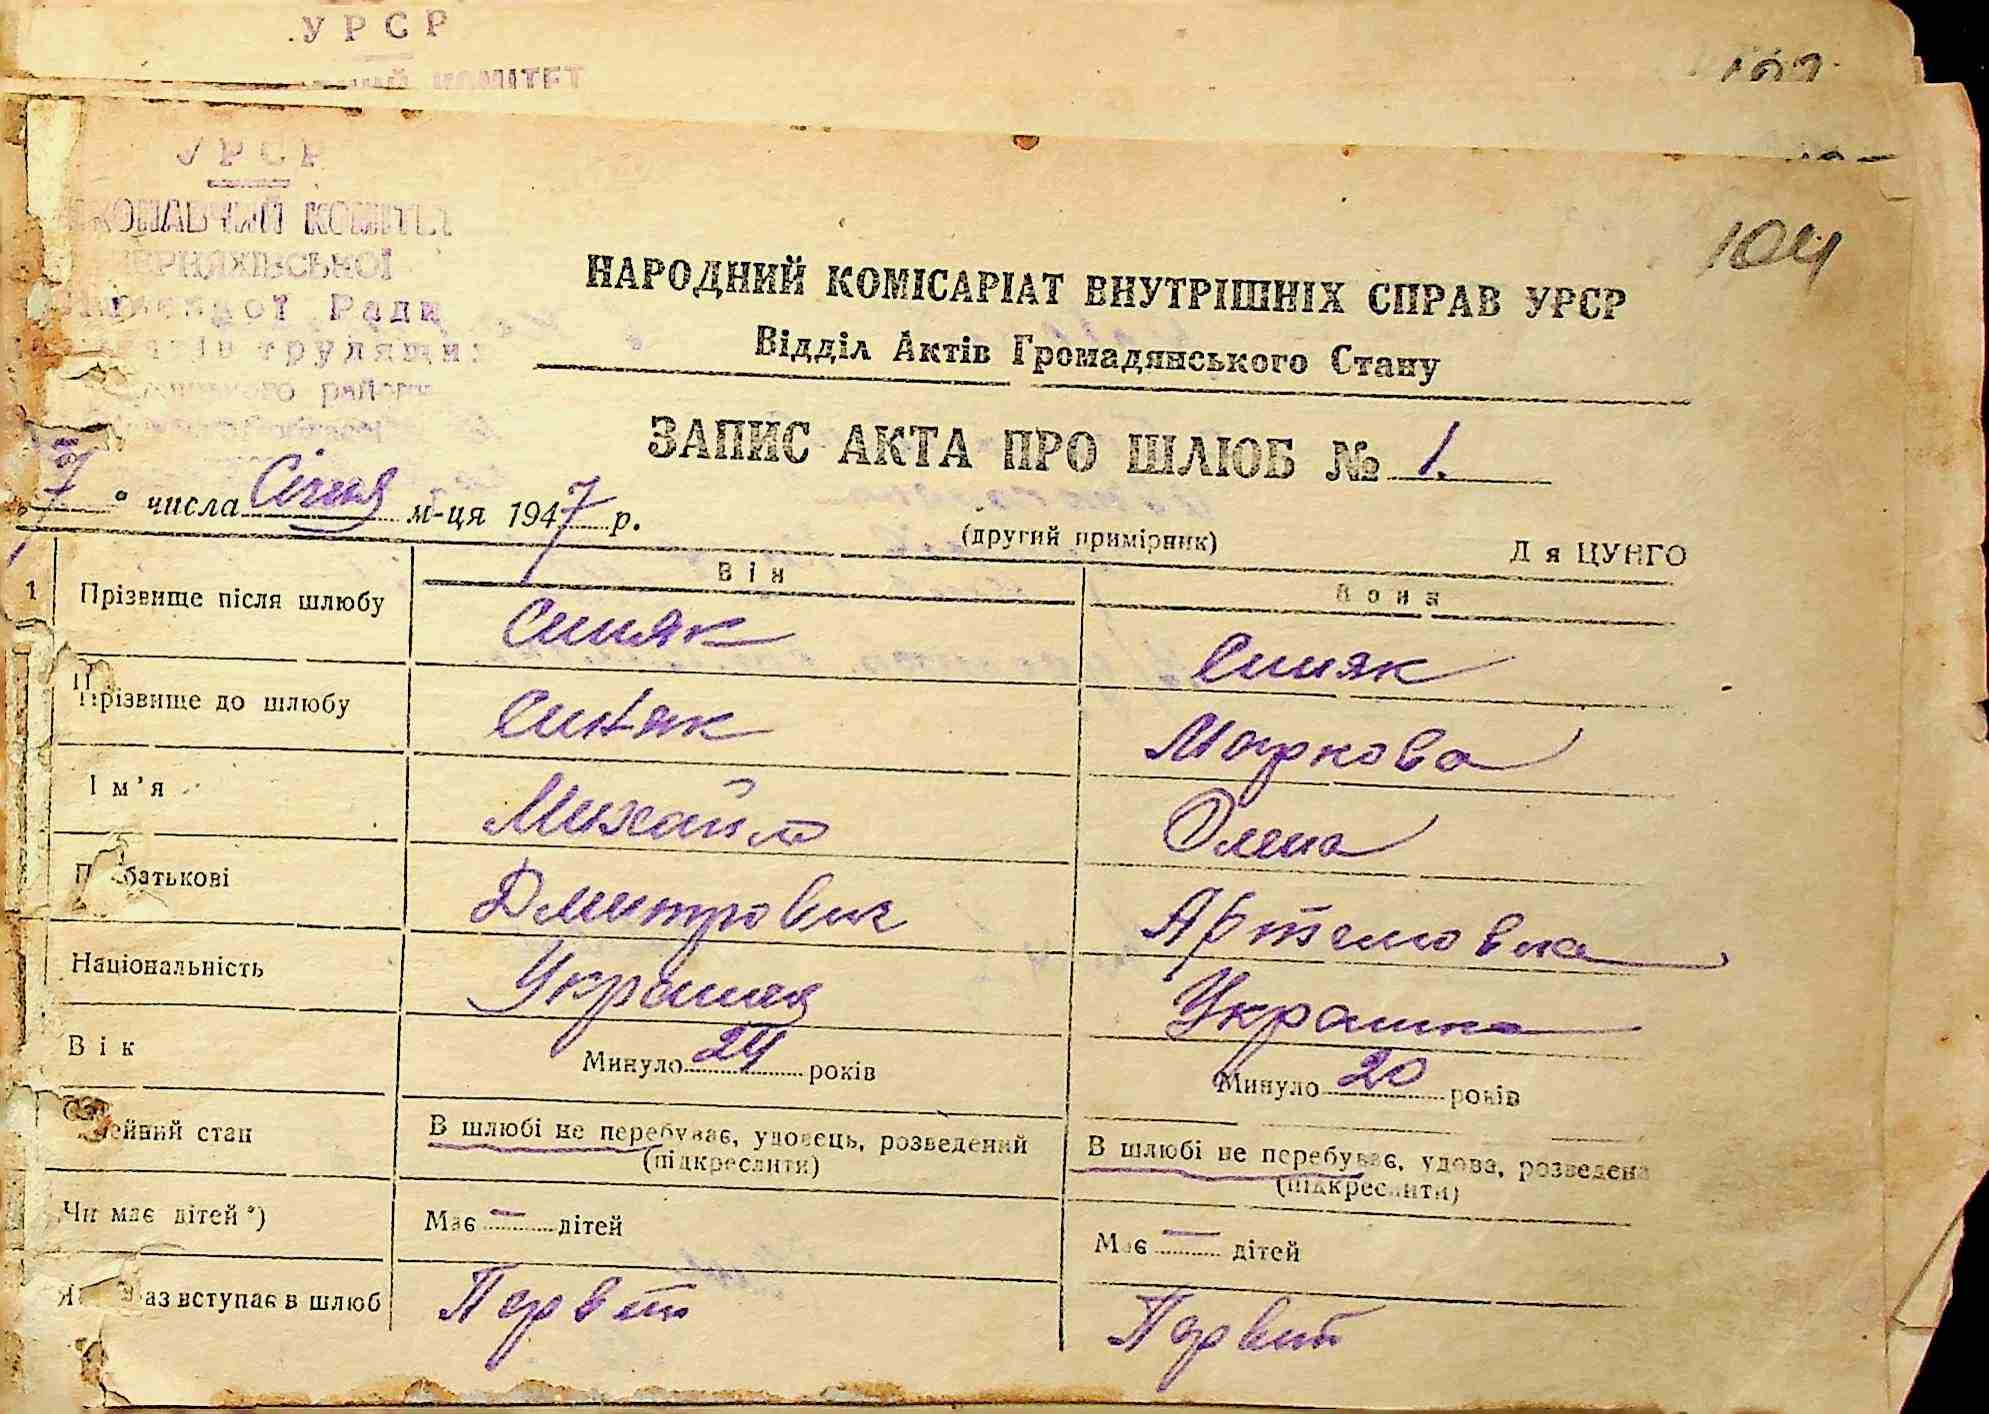 УРСР
КОМІТЕТ
УРСР
КОМІТЕТ
Ради
трудящих
району
104
НАРОДНИЙ КОМІСАРІАТ ВНУТРІШНІХ СПРАВ УРСР
Відділ Актів Громадянського Стану
ЗАПИС АКТА ПРО ШЛЮБ № 1.
7 " числа Січня м-ця 1947 р.
(другий примірник)
Д я ЦУНГО
Він
Вона
1 Прізвище після шлюбу Синяк Синяк
Прізвище до шлюбу Синяк Маркова
Ім'я Михайло Олена
батькові Дмитрович Артемовна
Національність Украинец Украинка
Вік Минуло 24 років Минуло 20 років
ейний стан В шлюбі не перебуває, удовець, розведений В шлюбі не перебуває, удова, розведена
(підкреслити) (підкреслити)
Чи має дітей*) Має — дітей Має — дітей
Я аз вступає в шлюб Первий Первий